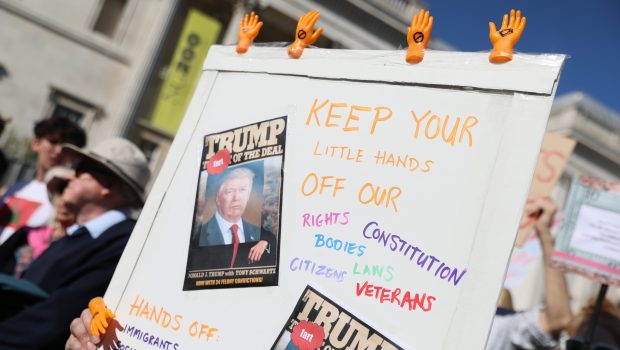 KEEP YOUR
LITTLE HANDS
OFF OUR
RIGHTS CONSTITUTION
BODIES
CITIZENS LAWS
VETERANS
TRUMP
fart
OF THE DEAL
DONALD J. TRUMP with TONY SCHWARTZ
NOW WITH 34 FELONY CONVICTIONS!
HANDS OFF:
IMMIGRANTS
TRUMP
fart
200